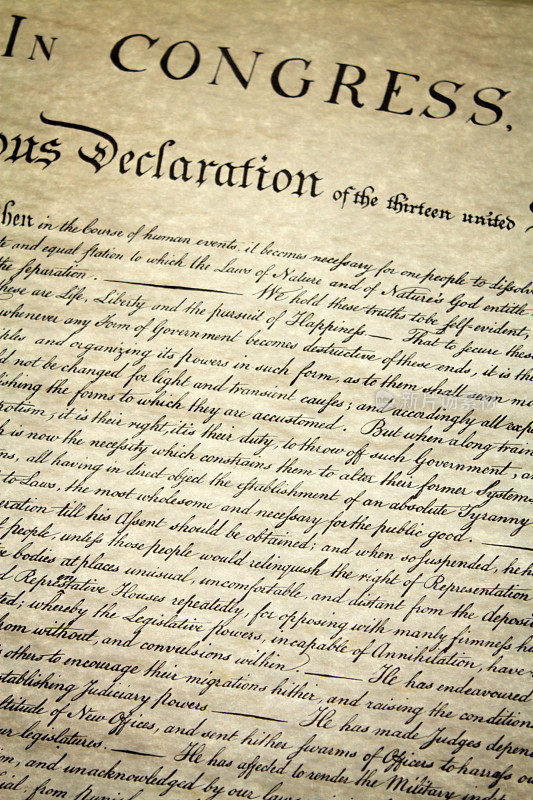 In Congress,
ous Declaration of the thirteen united S
hen in the Course of human events, it becomes necessary for one people to dissolve
te and equal station to which the Laws of Nature and of Nature's God entitle
the separation. We hold these truths to be self-evident,
these are Life, Liberty and the pursuit of Happiness— That to secure these
whenever any Form of Government becomes destructive of these ends, it is the
iples and organizing its powers in such form, as to them shall seem mo
d not be changed for light and transient causes; and accordingly all expe
lishing the forms to which they are accustomed. But when a long train
potism, it is their right, it is their duty, to throw off such Government, a
h is now the necessity which constrains them to alter their former Systems
ns, all having in direct object the establishment of an absolute Tyranny
to Laws, the most wholesome and necessary for the public good.
eration till his Assent should be obtained; and when so suspended, he ha
f people, unless those people would relinquish the right of Representation
e bodies at places unusual, uncomfortable, and distant from the deposito
d Representative Houses repeatedly, for opposing with manly firmness he
ted; whereby the Legislative powers, incapable of Annihilation, have
from without, and convulsions within. He has endeavoured
others to encourage their migrations hither, and raising the condition
stablishing Judiciary powers He has made Judges depend
ltitude of New Offices, and sent hither swarms of Officers to harrass ou
ur legislatures. He has affected to render the Military ind
on, and unacknowledged by our laws
cial: from Punish